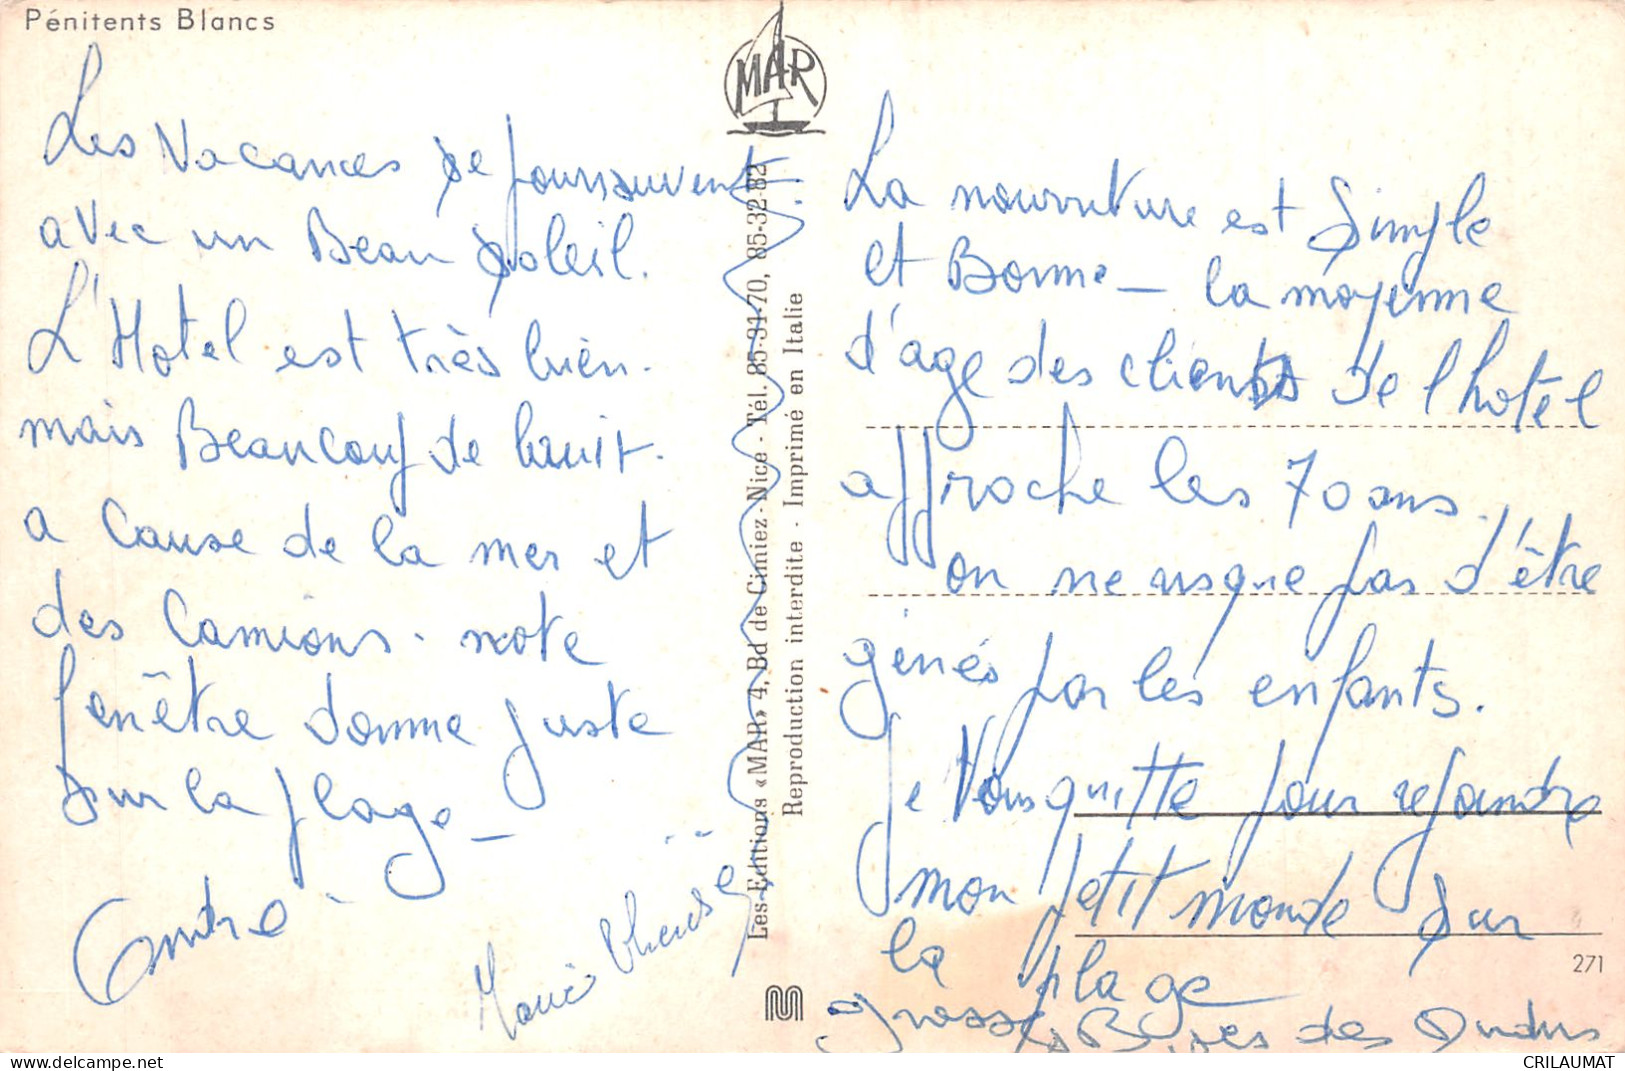 Pénitents Blancs
Les Vacances se poursuivent
avec un Beau soleil.
L'Hotel est très bien.
mais Beaucoup de bruit.
a cause de la mer et
des Camions. notre
fenêtre donne juste
sur la plage_
André
Marie Therese
MAR
Les Editions «MAR» 4, Bd de Cimiez - Nice - Tél. 85-31-70, 85-32-82
Reproduction interdite - Imprimé en Italie
La nourriture est Simple
et Bonne_ la moyenne
d'age des clients de l'hotel
approche les 70 ans.
on ne risque pas d'être
génés par les enfants.
Je Vous quitte pour rejoindre
mon petit monde sur
la plage
grosses Bises des
271
CRILAUMAT